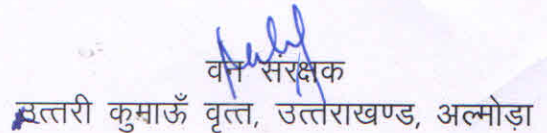 वन संरक्षक
उत्तरी कुमाऊँ वृत्त, उत्तराखण्ड, अल्मोड़ा